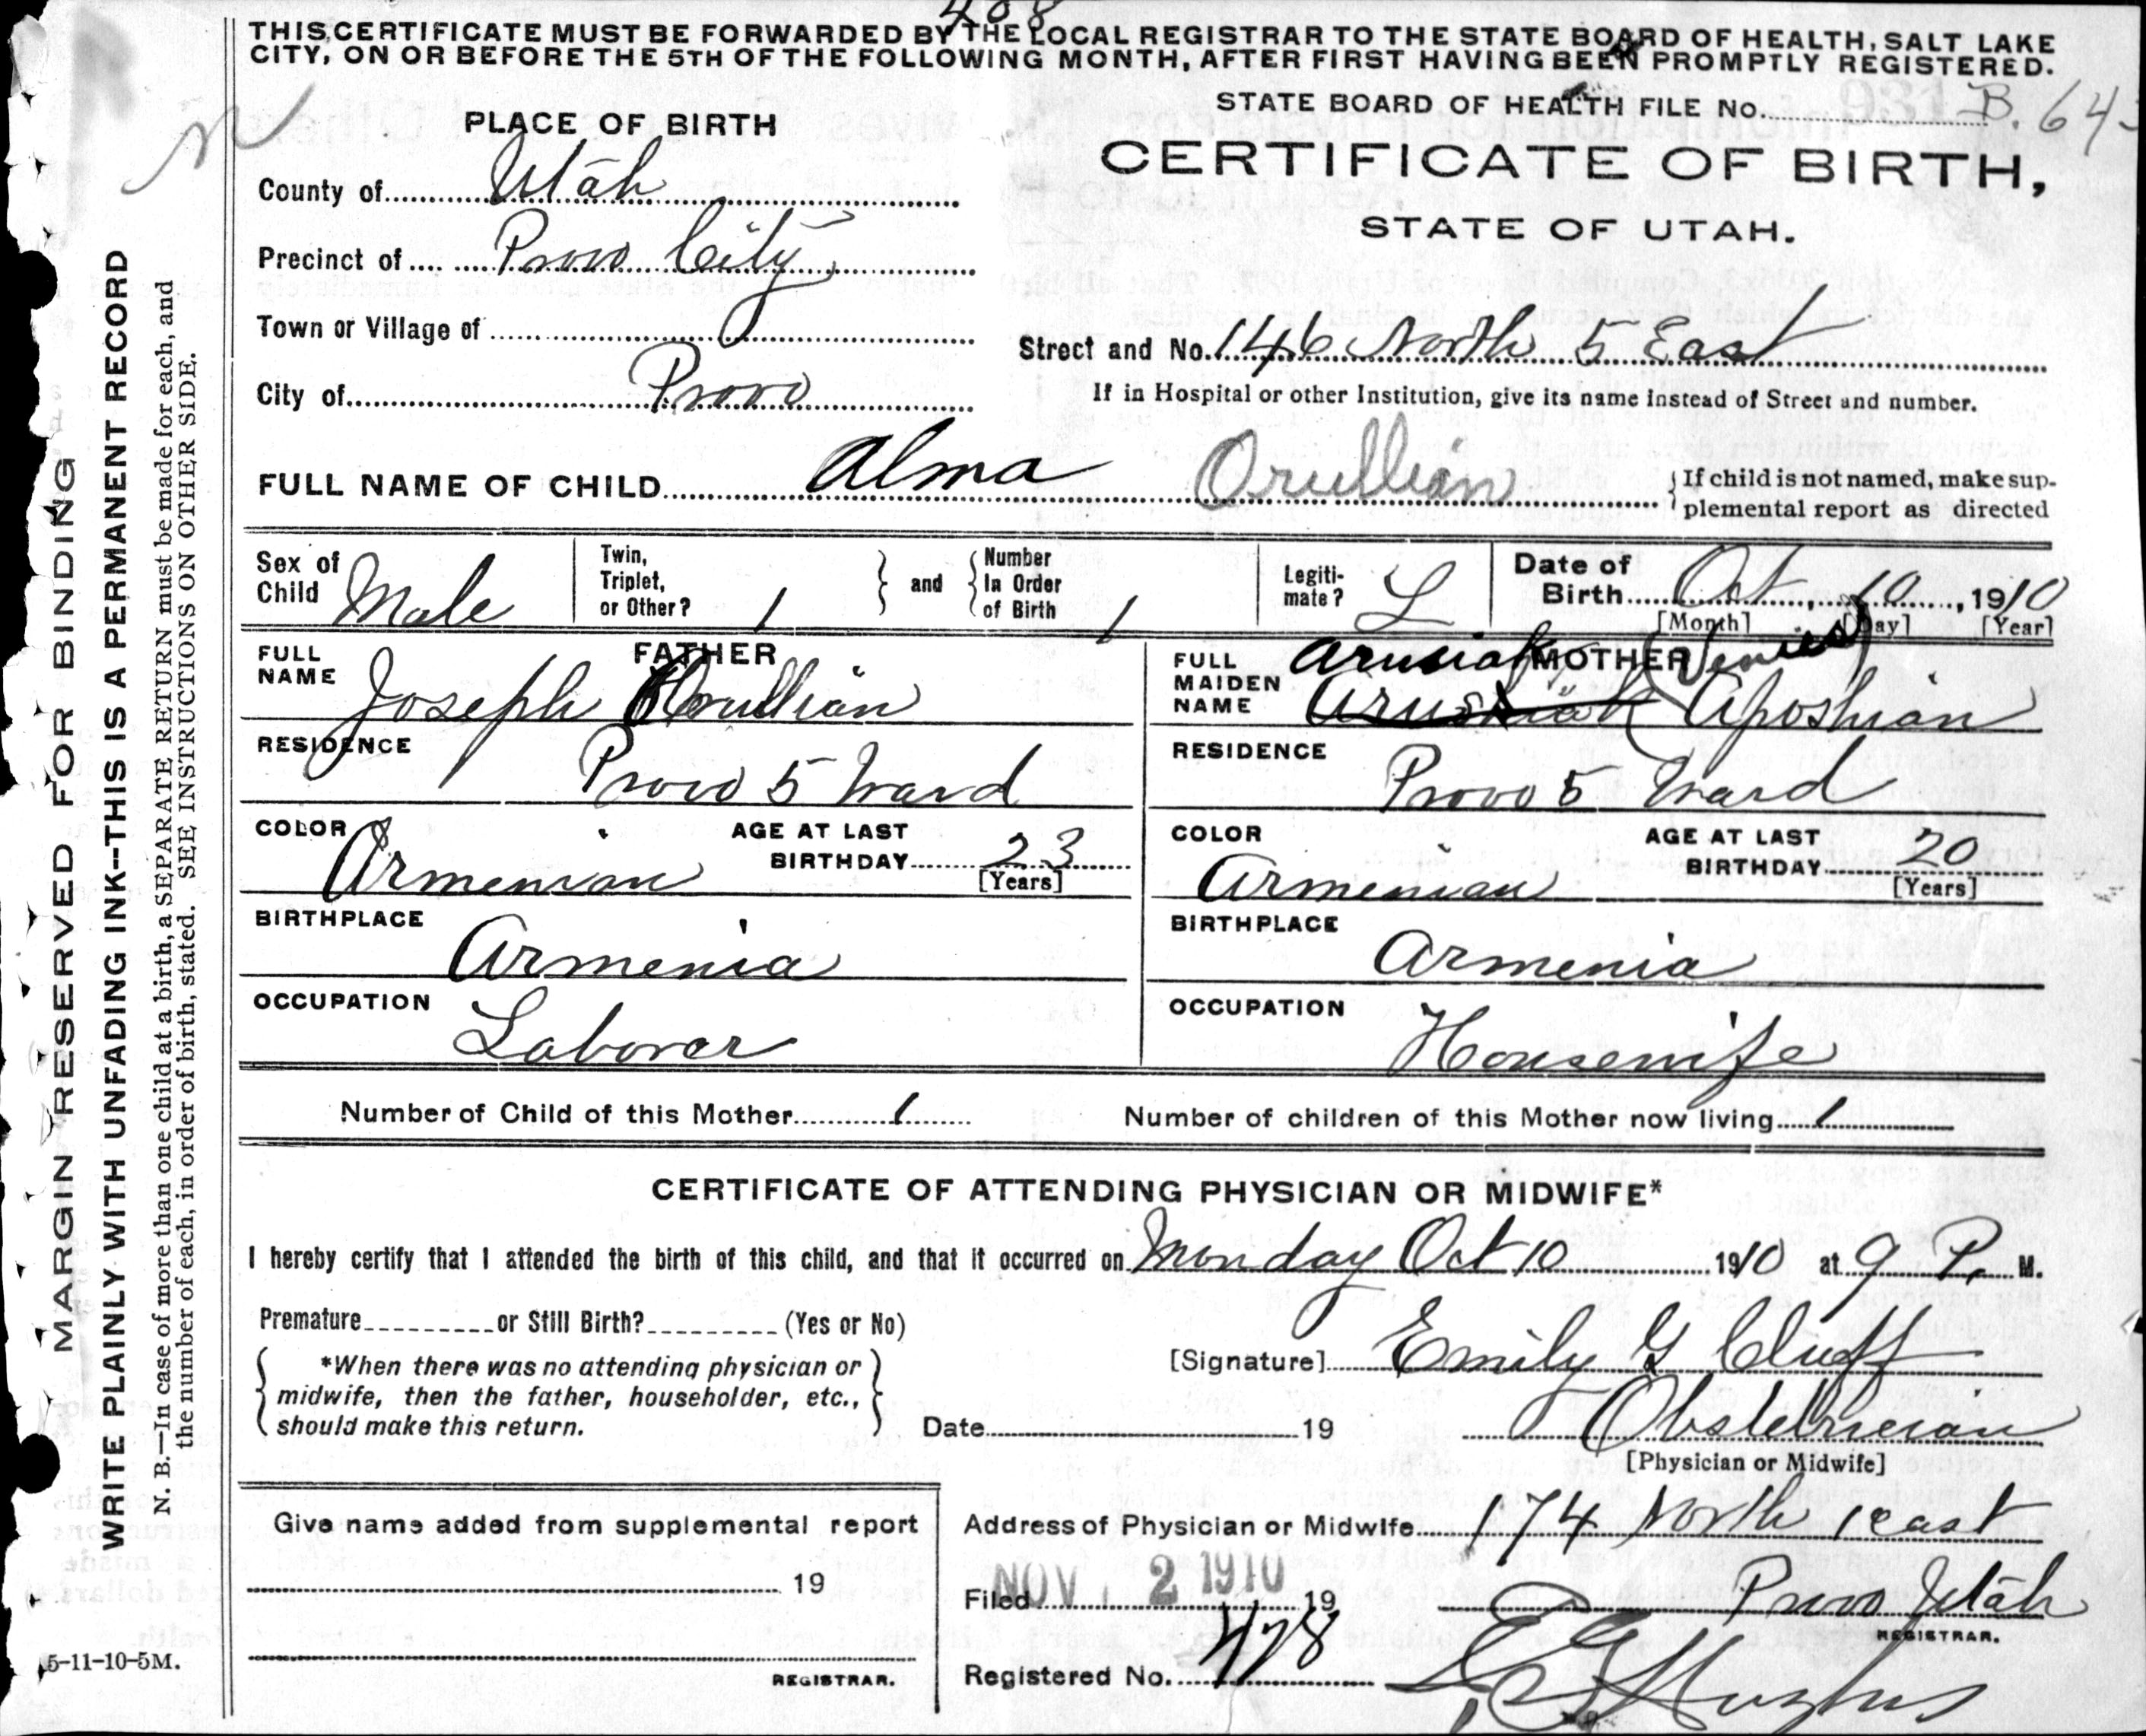 408
THIS CERTIFICATE MUST BE FORWARDED BY THE LOCAL REGISTRAR TO THE STATE BOARD OF HEALTH, SALT LAKE
CITY, ON OR BEFORE THE 5TH OF THE FOLLOWING MONTH, AFTER FIRST HAVING BEEN PROMPTLY REGISTERED.
STATE BOARD OF HEALTH FILE No. B. 64
PLACE OF BIRTH
CERTIFICATE OF BIRTH,
STATE OF UTAH.
County of Utah
Precinct of Provo City
Town or Village of
Street and No. 146 North 5 East
City of Provo
If in Hospital or other Institution, give its name instead of Street and number.
FULL NAME OF CHILD Alma Orullian
{If child is not named, make sup-
plemental report as directed
Sex of Child Male
Twin, Triplet, or Other? 1 } and { Number In Order of Birth 1
Legiti-mate? L
Date of Birth Oct 10, 1910
[Month] [Day] [Year]
FATHER
FULL NAME Joseph Orullian
RESIDENCE Provo 5 Ward
COLOR Armenian
AGE AT LAST BIRTHDAY 23
[Years]
BIRTHPLACE Armenia
OCCUPATION Laborer
MOTHER
FULL MAIDEN NAME Arusiak (Venus) Aposhian
RESIDENCE Provo 5 Ward
COLOR Armenian
AGE AT LAST BIRTHDAY 20
[Years]
BIRTHPLACE Armenia
OCCUPATION Housewife
Number of Child of this Mother 1
Number of children of this Mother now living 1
CERTIFICATE OF ATTENDING PHYSICIAN OR MIDWIFE*
I hereby certify that I attended the birth of this child, and that it occurred on Monday Oct 10 1910 at 9 P. M.
Premature or Still Birth? (Yes or No)
*When there was no attending physician or
midwife, then the father, householder, etc.,
should make this return.
[Signature] Emily G Cluff
Date 19
Obstetrician
[Physician or Midwife]
Give name added from supplemental report
19
REGISTRAR.
Address of Physician or Midwife 174 North 1 east
Provo Utah
Filed NOV 2 1910 19
REGISTRAR.
Registered No. 478
MARGIN RESERVED FOR BINDING
WRITE PLAINLY WITH UNFADING INK--THIS IS A PERMANENT RECORD
N. B.—In case of more than one child at a birth, a SEPARATE RETURN must be made for each, and
the number of each, in order of birth, stated. SEE INSTRUCTIONS ON OTHER SIDE.
5-11-10-5M.